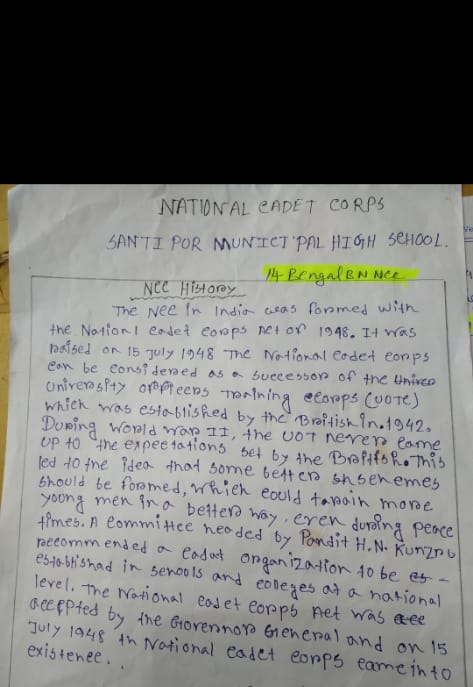 NATIONAL CADET CORPS
SANTIPOR MUNICIPAL HIGH SCHOOL.
14 Bengal BN NCC
NCC History
The NCC in India was formed with
the Nationl cadet corps act of 1948. It was
raised on 15 July 1948 The National cadet corps
can be considered as a successor of the
University officers Training corps (UOTC)
which was established by the British in 1942.
During world war II, the UOT never came
up to the expectations set by the British. This
led to the idea that some better shsemes
should be formed, which could tarain more
young men in a better way, even during peace
times. A committee headed by Pandit H.N. Kunzru
recommended a cadat organization to be es-
established in schools and colleges at a national
level. The National cadet corps Act was
acceppted by the Governor General and on 15
July 1948 th National cadet corps came into
existence..